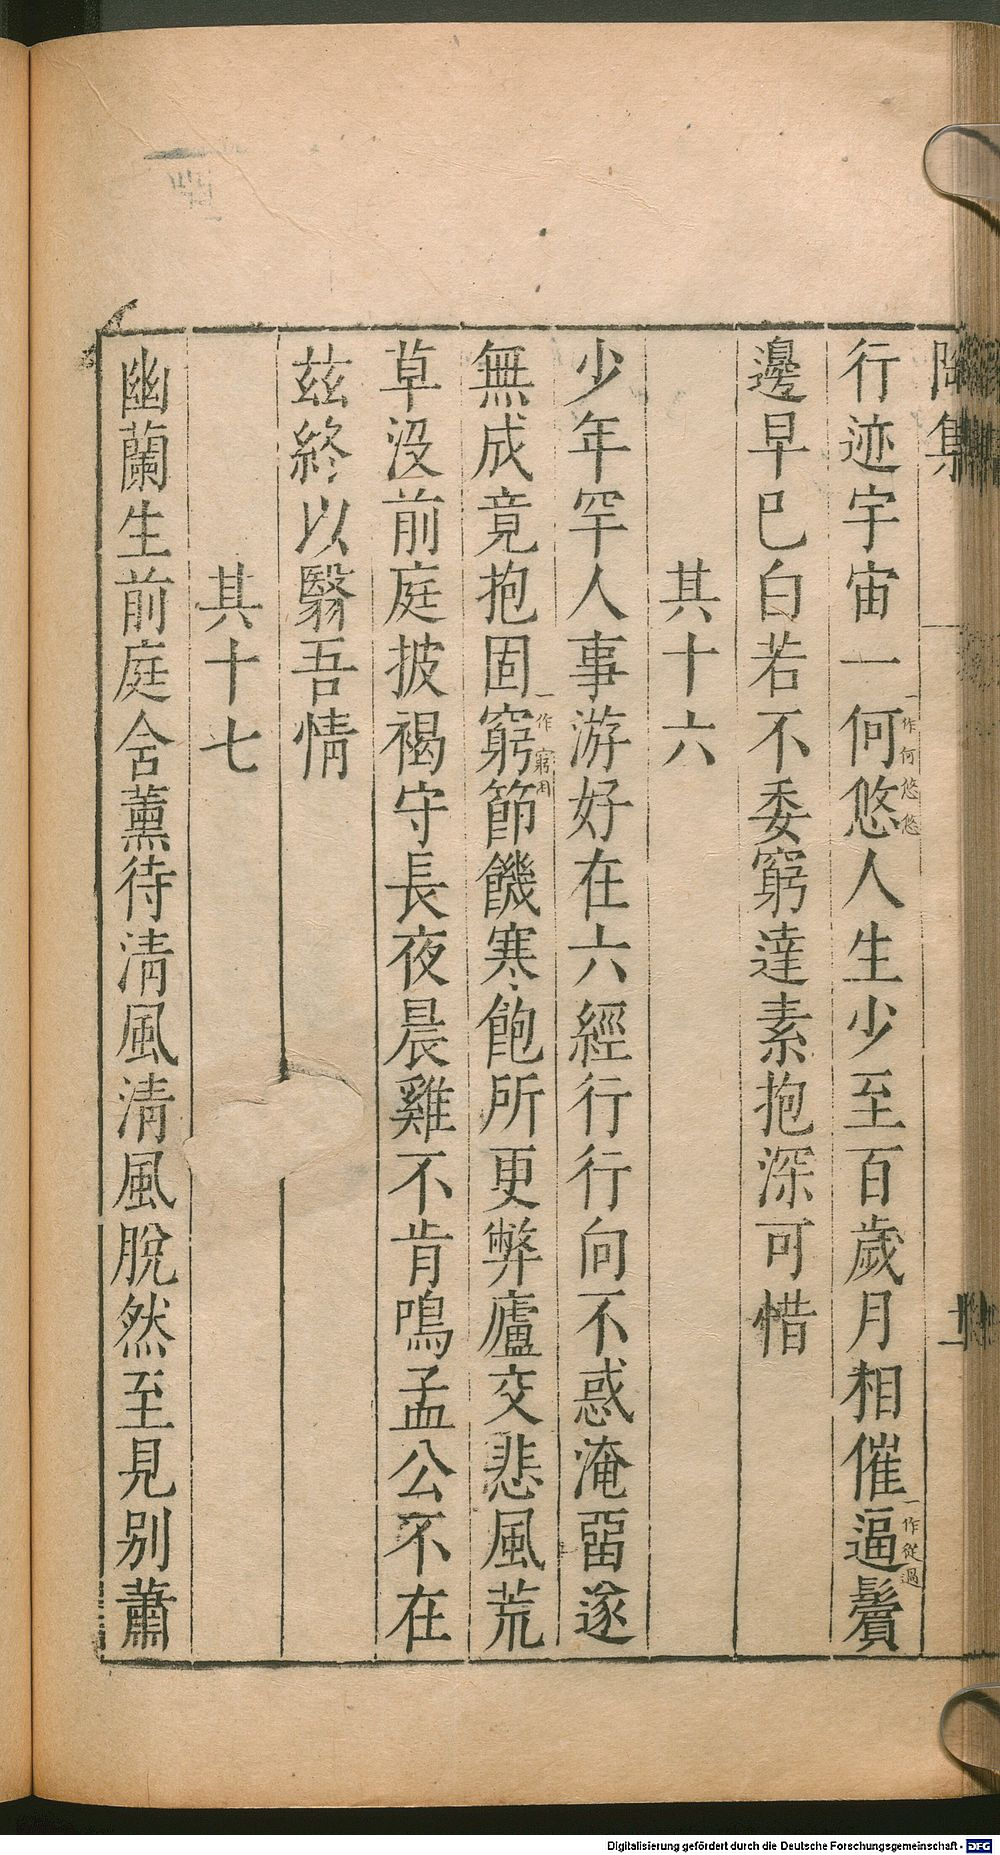 陶集
行迹宇宙一何悠人生少至百歲月相催逼鬢
一作何悠悠
一作從過
邊早巳白若不委窮達素抱深可惜
其十六
少年罕人事游好在六經行行向不惑淹畱遂
無成竟抱固窮節饑寒飽所更弊廬交悲風荒
一作窮困
草沒前庭披褐守長夜晨雞不肯鳴孟公不在
茲終以翳吾情
其十七
幽蘭生前庭含薰待清風清風脫然至見別蕭
Digitalisierung gefördert durch die Deutsche Forschungsgemeinschaft - DFG